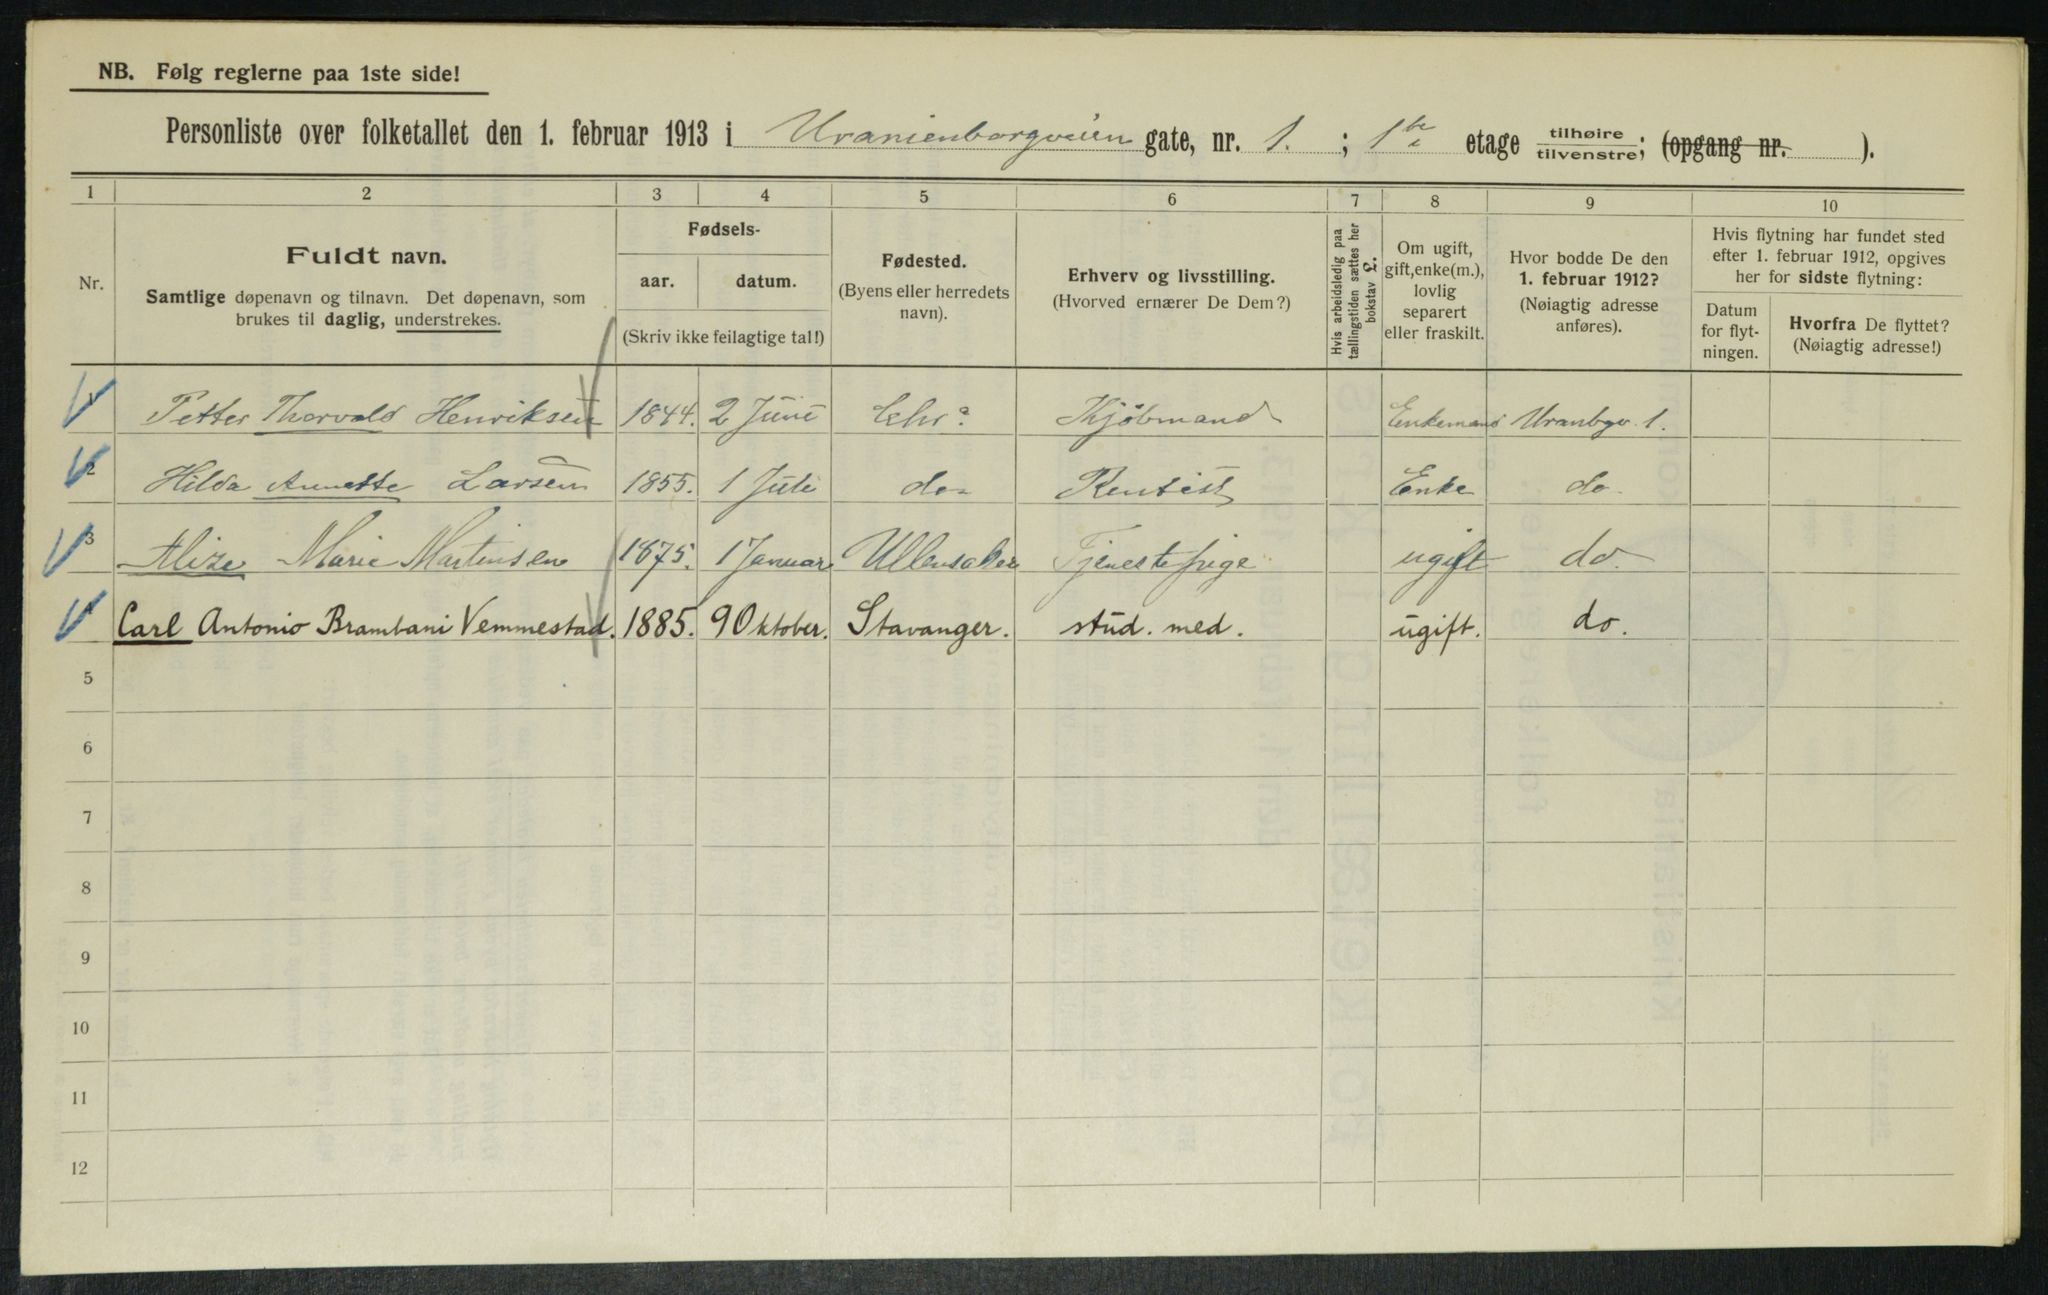 NB. Følg reglerne paa 1ste side!
Personliste over folketallet den 1. februar 1913 i Uranienborgveien gate, nr. 1. ; 1ste etage tilhøire tilvenstre; (opgang nr. ).
1 2 3 4 5 6 7 8 9 10
Nr.
Fuldt navn.
Samtlige døpenavn og tilnavn. Det døpenavn, som
brukes til daglig, understrekes.
Fødsels-
aar. datum.
(Skriv ikke feilagtige tal!)
Fødested.
(Byens eller herredets
navn).
Erhverv og livsstilling.
(Hvorved ernærer De Dem?)
Hvis arbeidsledig paa
tællingstiden sættes her
bokstav L.
Om ugift,
gift, enke(m.),
lovlig
separert
eller fraskilt.
Hvor bodde De den
1. februar 1912?
(Nøiagtig adresse
anføres).
Hvis flytning har fundet sted
efter 1. februar 1912, opgives
her for sidste flytning:
Datum
for flyt-
ningen.
Hvorfra De flyttet?
(Nøiagtig adresse!)
1 Petter Thorvald Henriksen 1844. 2 Juni Chr.a Kjøbmand Enkemand Uranbgv. 1.
2 Hilda Annette Larsen 1855. 1 Juli do Rentist Enke do
3 Alize Marie Martinsen 1875. 1 Januar Ullensaker Tjenestepige ugift do.
4 Carl Antonio Brambani Vemmestad. 1885. 9 Oktober. Stavanger. stud. med. ugift. do.
5
6
7
8
9
10
11
12